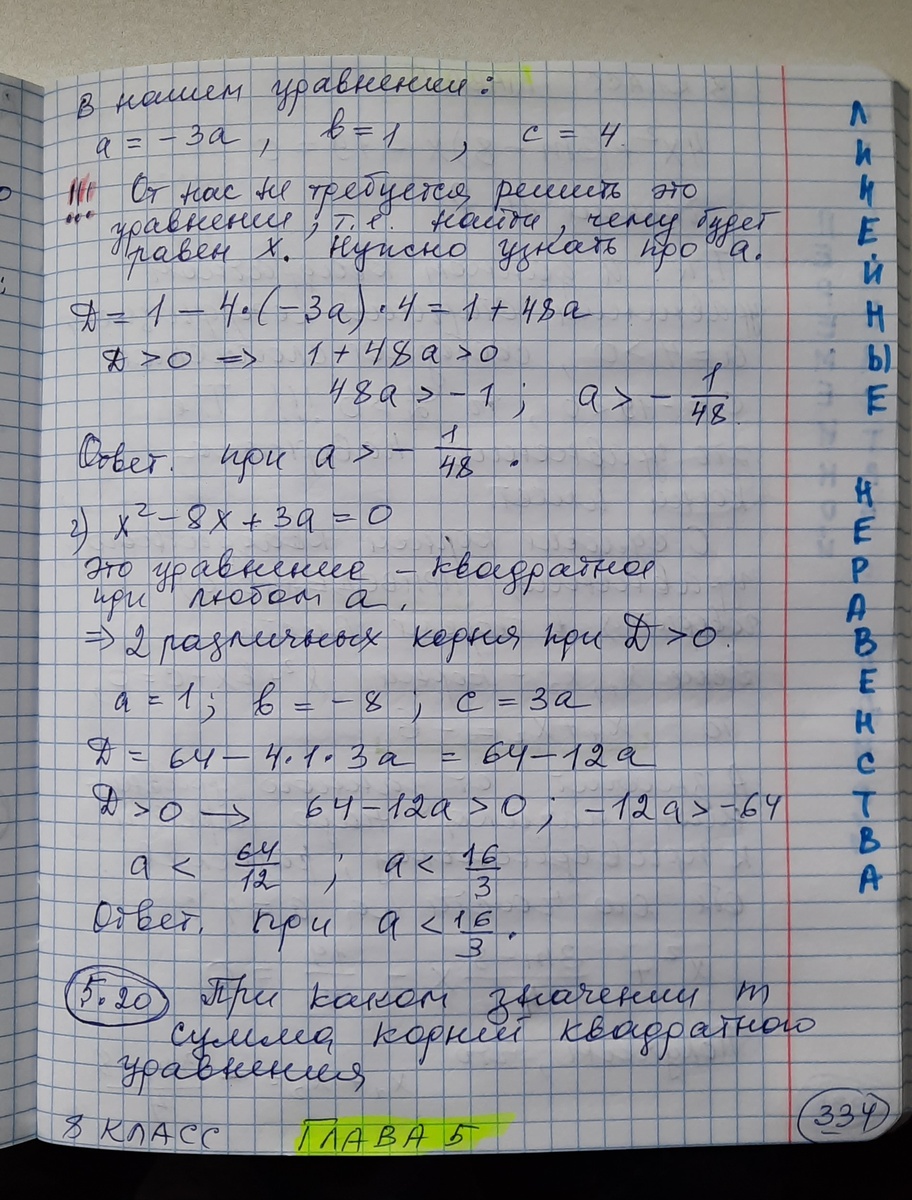 В нашем уравнении:
a = -3a, в = 1, c = 4.
!!! От нас не требуется решить это
уравнение, т.е. найти, чему будет
равен x. Нужно узнать про a.
D = 1 - 4·(-3a)·4 = 1 + 48a
D > 0 => 1 + 48a > 0
48a > -1; a > - 1/48.
Ответ. при a > - 1/48.
г) x² - 8x + 3a = 0
это уравнение - квадратное
при любом a.
=> 2 различных корня при D > 0.
a = 1; в = -8; c = 3a
D = 64 - 4·1·3a = 64 - 12a
D > 0 → 64 - 12a > 0; -12a > -64
a < 64/12; a < 16/3
Ответ. при a < 16/3.
5.20 При каком значении m
сумма корней квадратного
уравнения
8 КЛАСС ГЛАВА 5
334
ЛИНЕЙНЫЕ НЕРАВЕНСТВА